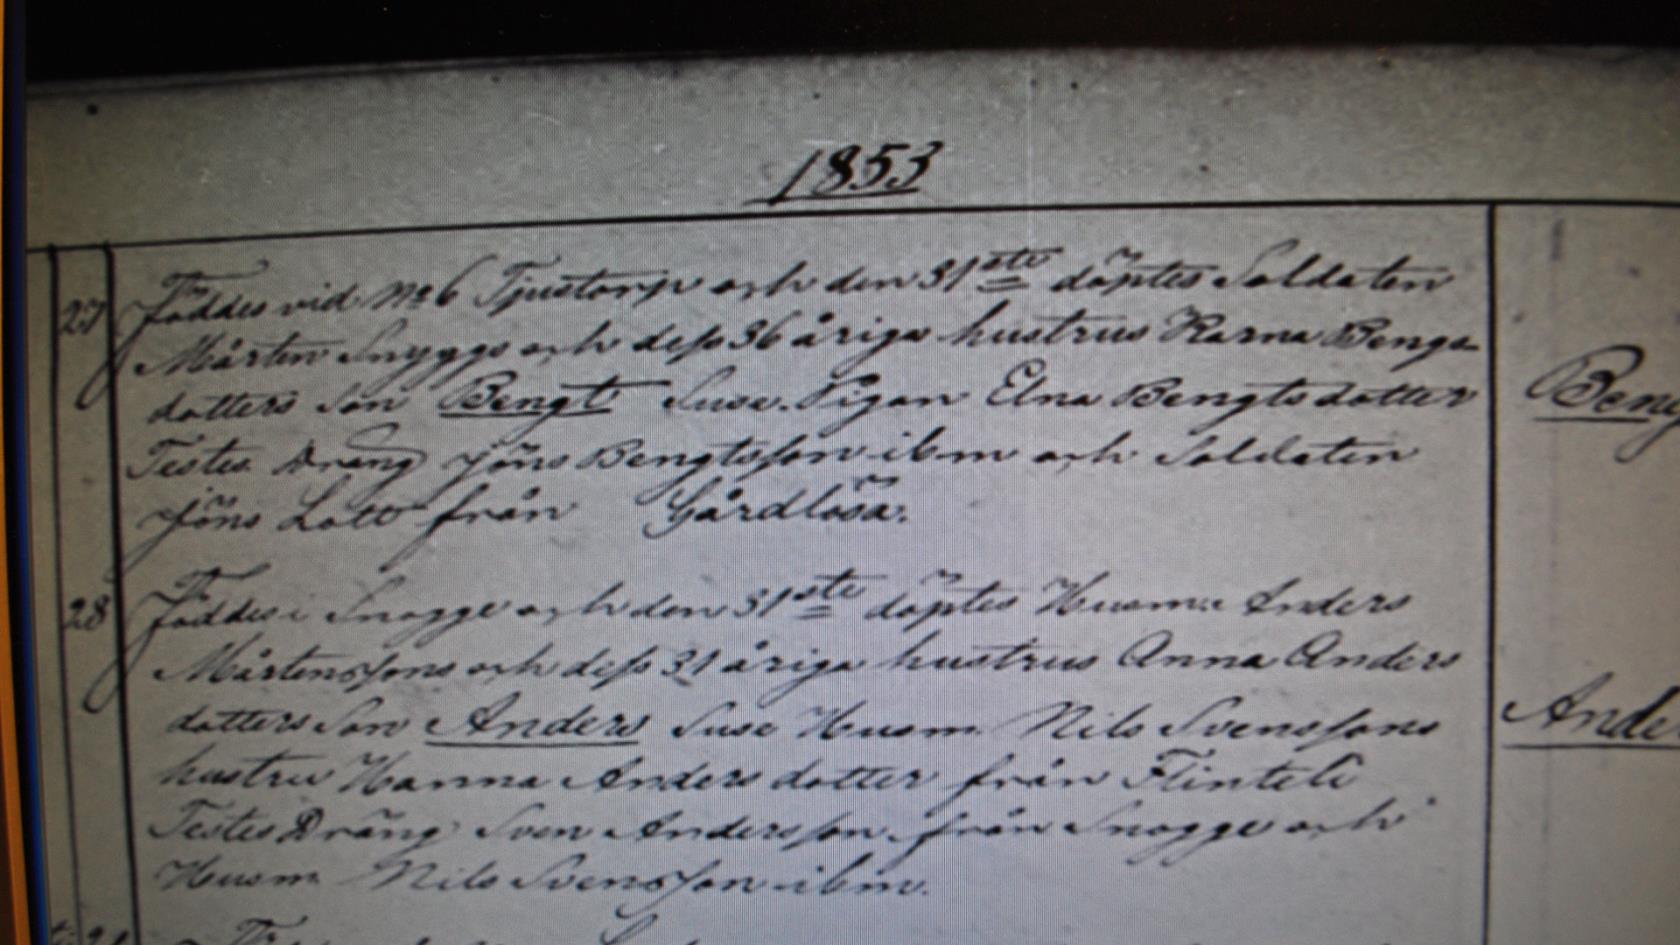 1853
27 Föddes vid No 6 Tjustorp och den 31ste döptes Soldaten
Mårten Snyggs och dess 36 åriga hustrus Karna Bengs-
dotters son Bengt Susc. Pigan Elna Bengtsdotter
Testes Dräng Jöns Bengtsson ibm och Soldaten
Jöns Lott från Gårdlösa.
Beng
28 Föddes i Snogge och den 31ste döptes Husm. Anders
Mårtenssons och dess 31 åriga hustrus Anna Anders
dotters son Anders Susc Husm. Nils Svenssons
hustru Hanna Andersdotter från
Testes Dräng Sven Andersson från Snogge och
Husm. Nils Svensson ibm.
Ande